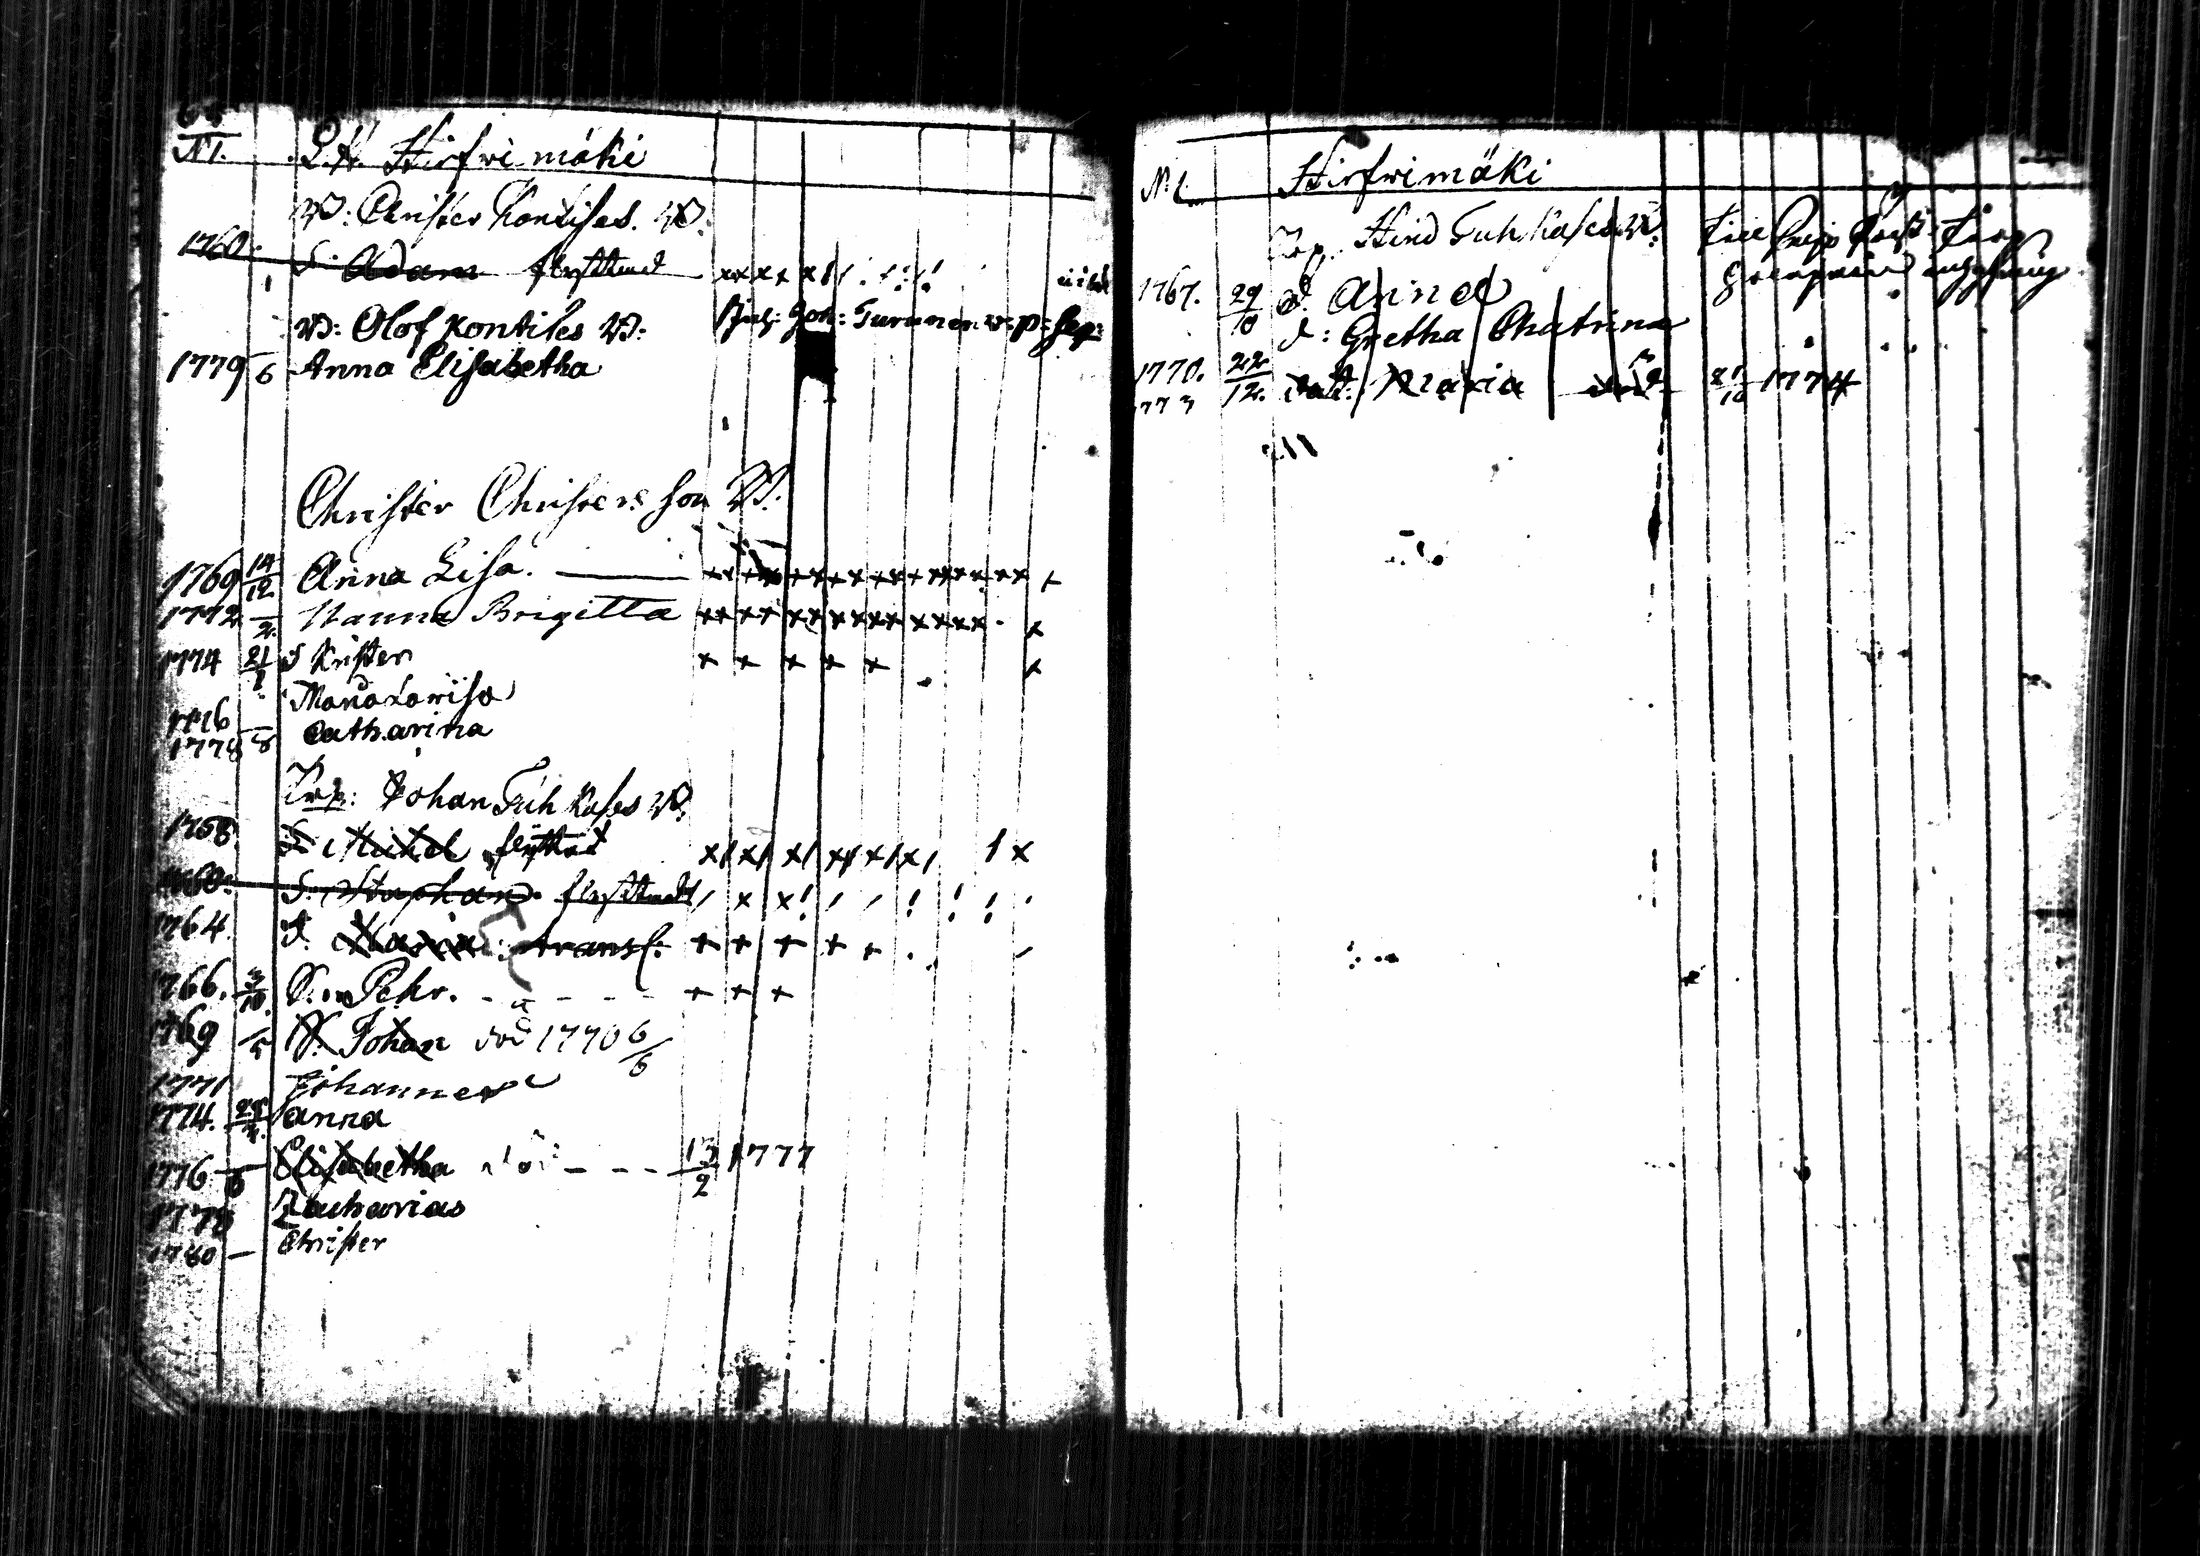 N 1. Hirfwimäki
W: Christer Kontises. W:
1760. S. Adam flyttad
W: Olof Kontises W: Joh: Turunen
1779 6 Anna Elisabetha
Christer Christersson W.
1769 14/12 Anna Lisa.
1772 2 Hanna Brigitta
1774 21/1 S Krister
1776 Maria Lowisa
1778 8 Catharina
Johan Tuhkases W:
1758 S Michel flyttad
1760: S. Staphan flyttad
1764. d. Maria: transf:
1766. 3/10. S. Pehr.
1769 /5 S. Johan död 1770 6/6
1771 Johannes
1774. Anna
1776 6 Elisabetha död 13/2 1777
1778 Zacharias
1780 Christer
N. 1. Hirfwimäki
Hind Tuhkases W:
1767. 29/10 d. Anna
d: Gretha Chatrina
1770. 22/12. Maria död 1774
1773